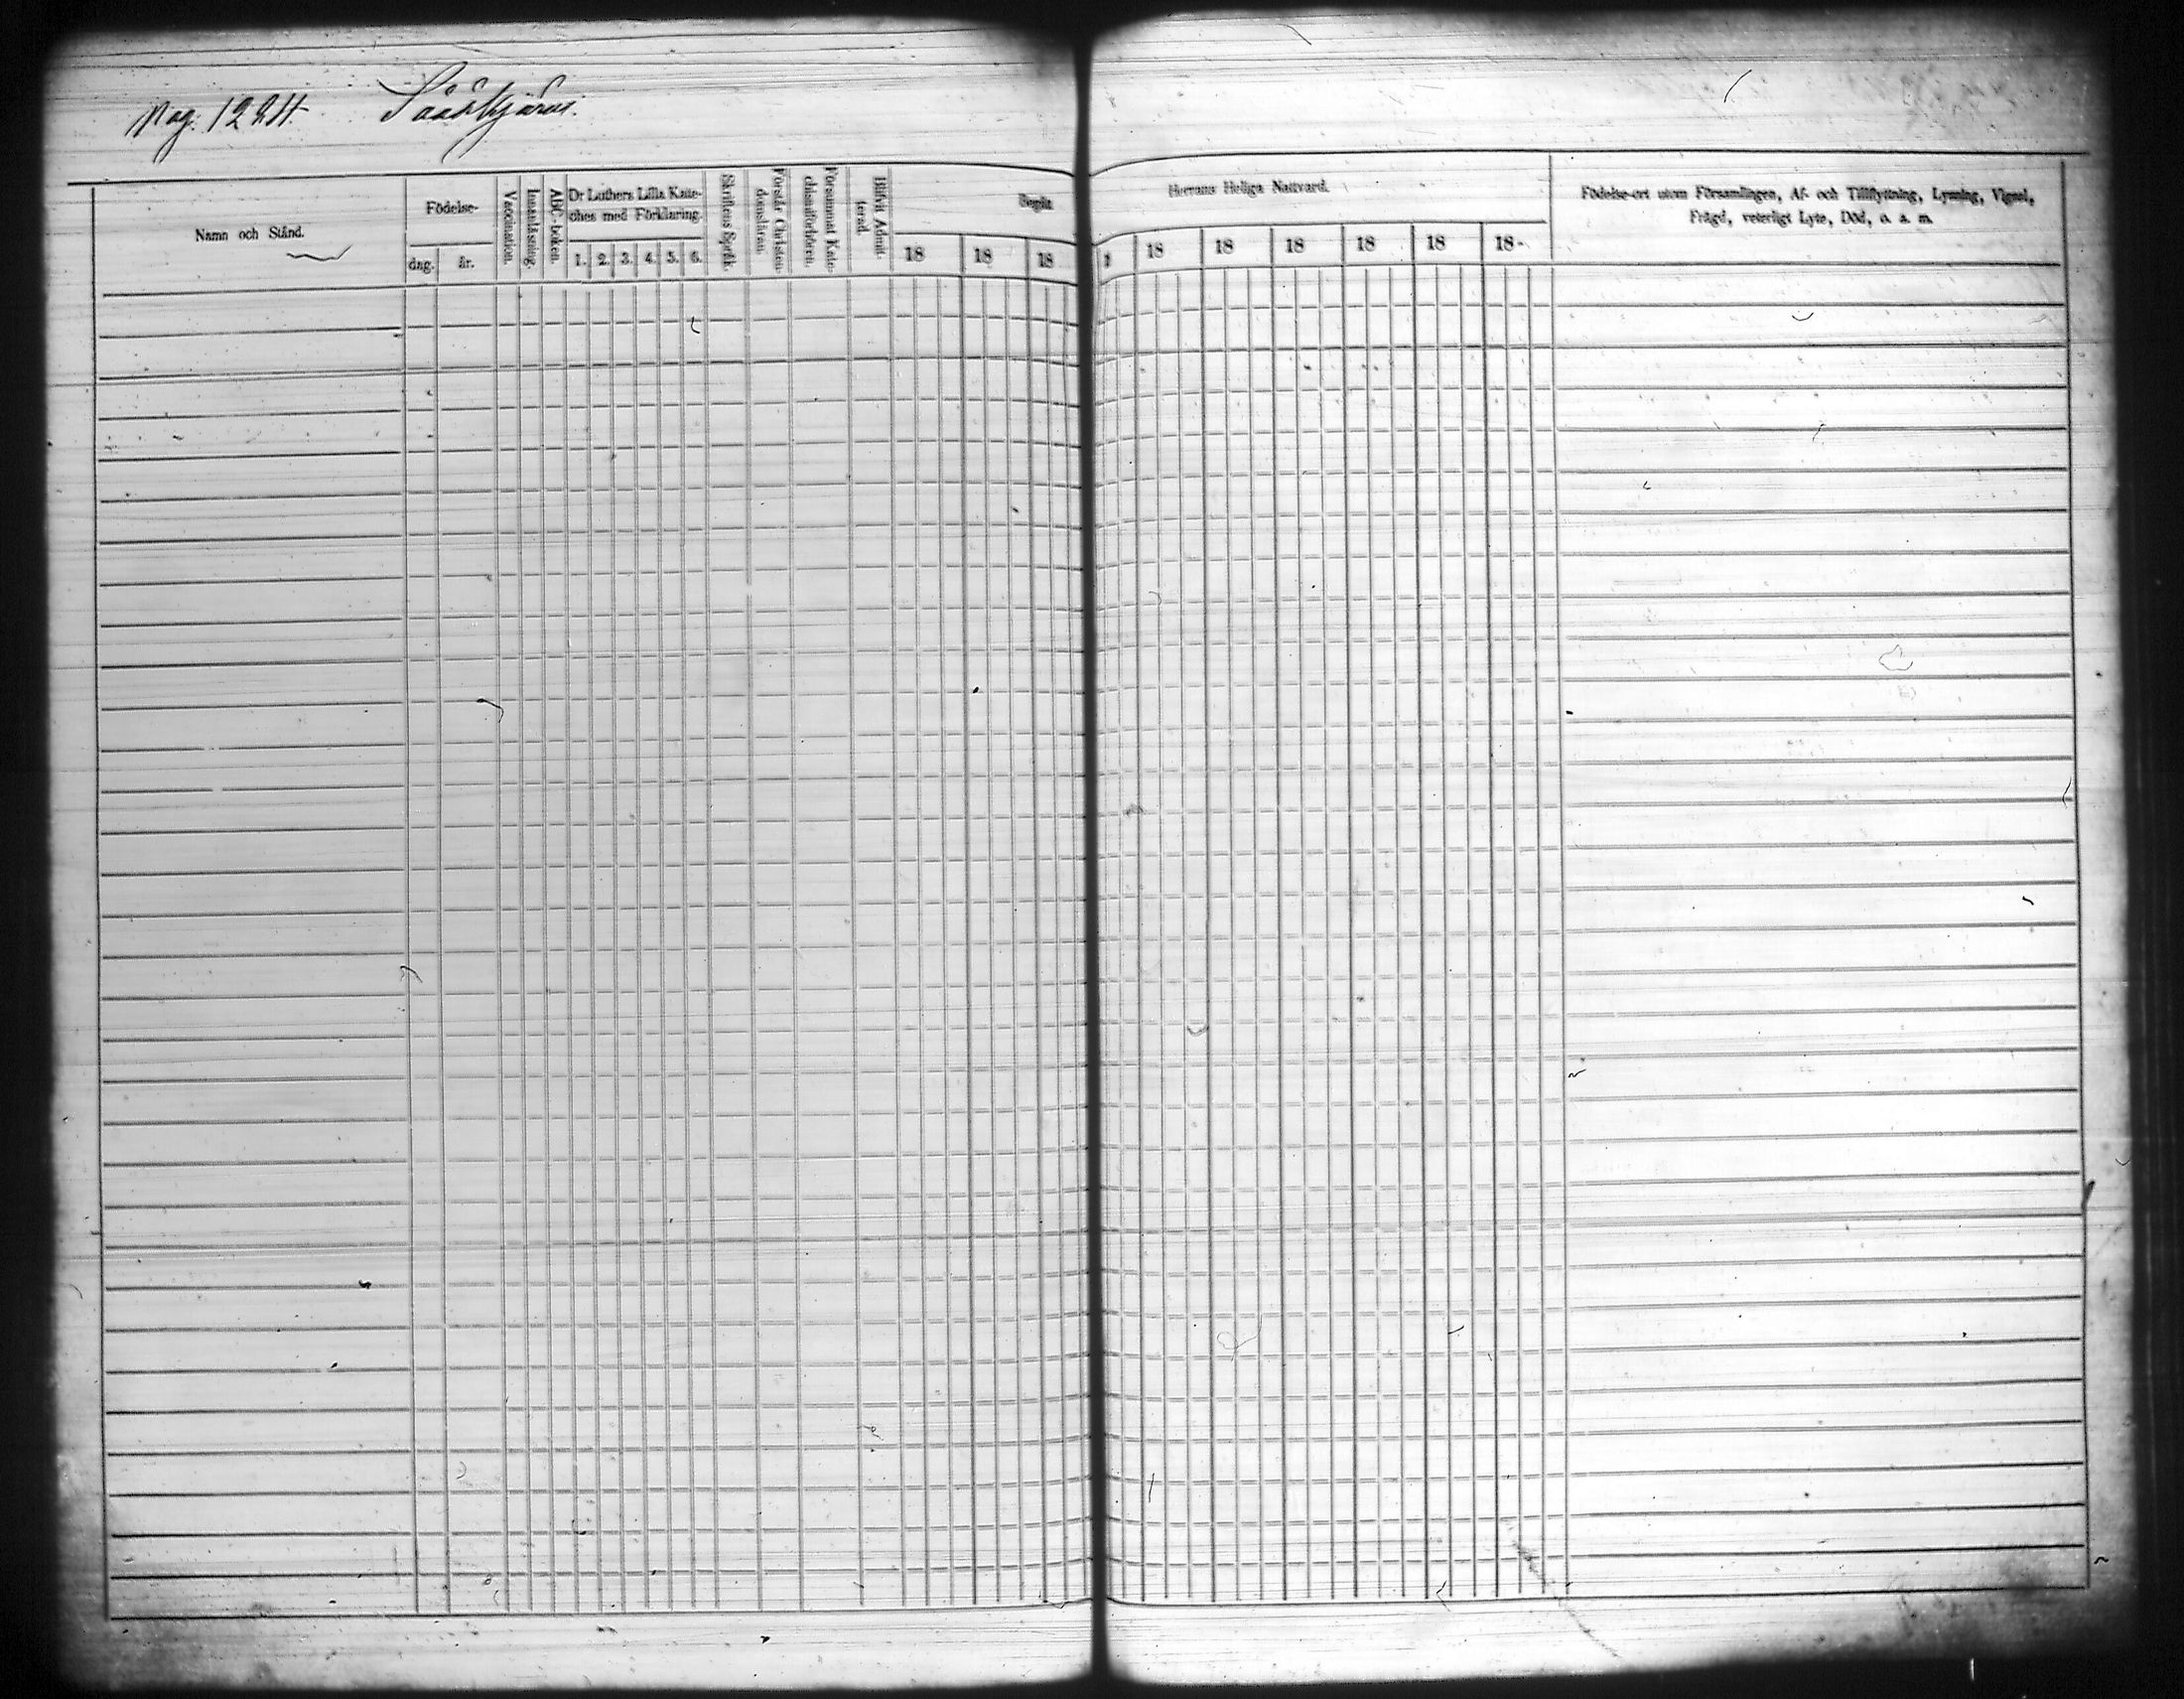 Pag. 1224.
Namn och Stånd.
Födelse-
dag.
år.
Vaccination.
Innanläsning.
ABC-boken.
Dr Luthers Lilla Kate-
ches med Förklaring.
1. 2. 3. 4. 5. 6.
Skriftens Språk.
Förstår Christen-
domsläran.
Försummat Kate-
chismiförhören.
Blifvit Admit-
terad.
Begås
18 18 18
Herrans Heliga Nattvard.
18 18 18 18 18 18
Födelse-ort utom Församlingen, Af- och Tillflyttning, Lysning, Vigsel,
Frägd, veterligt Lyte, Död, o. s. m.